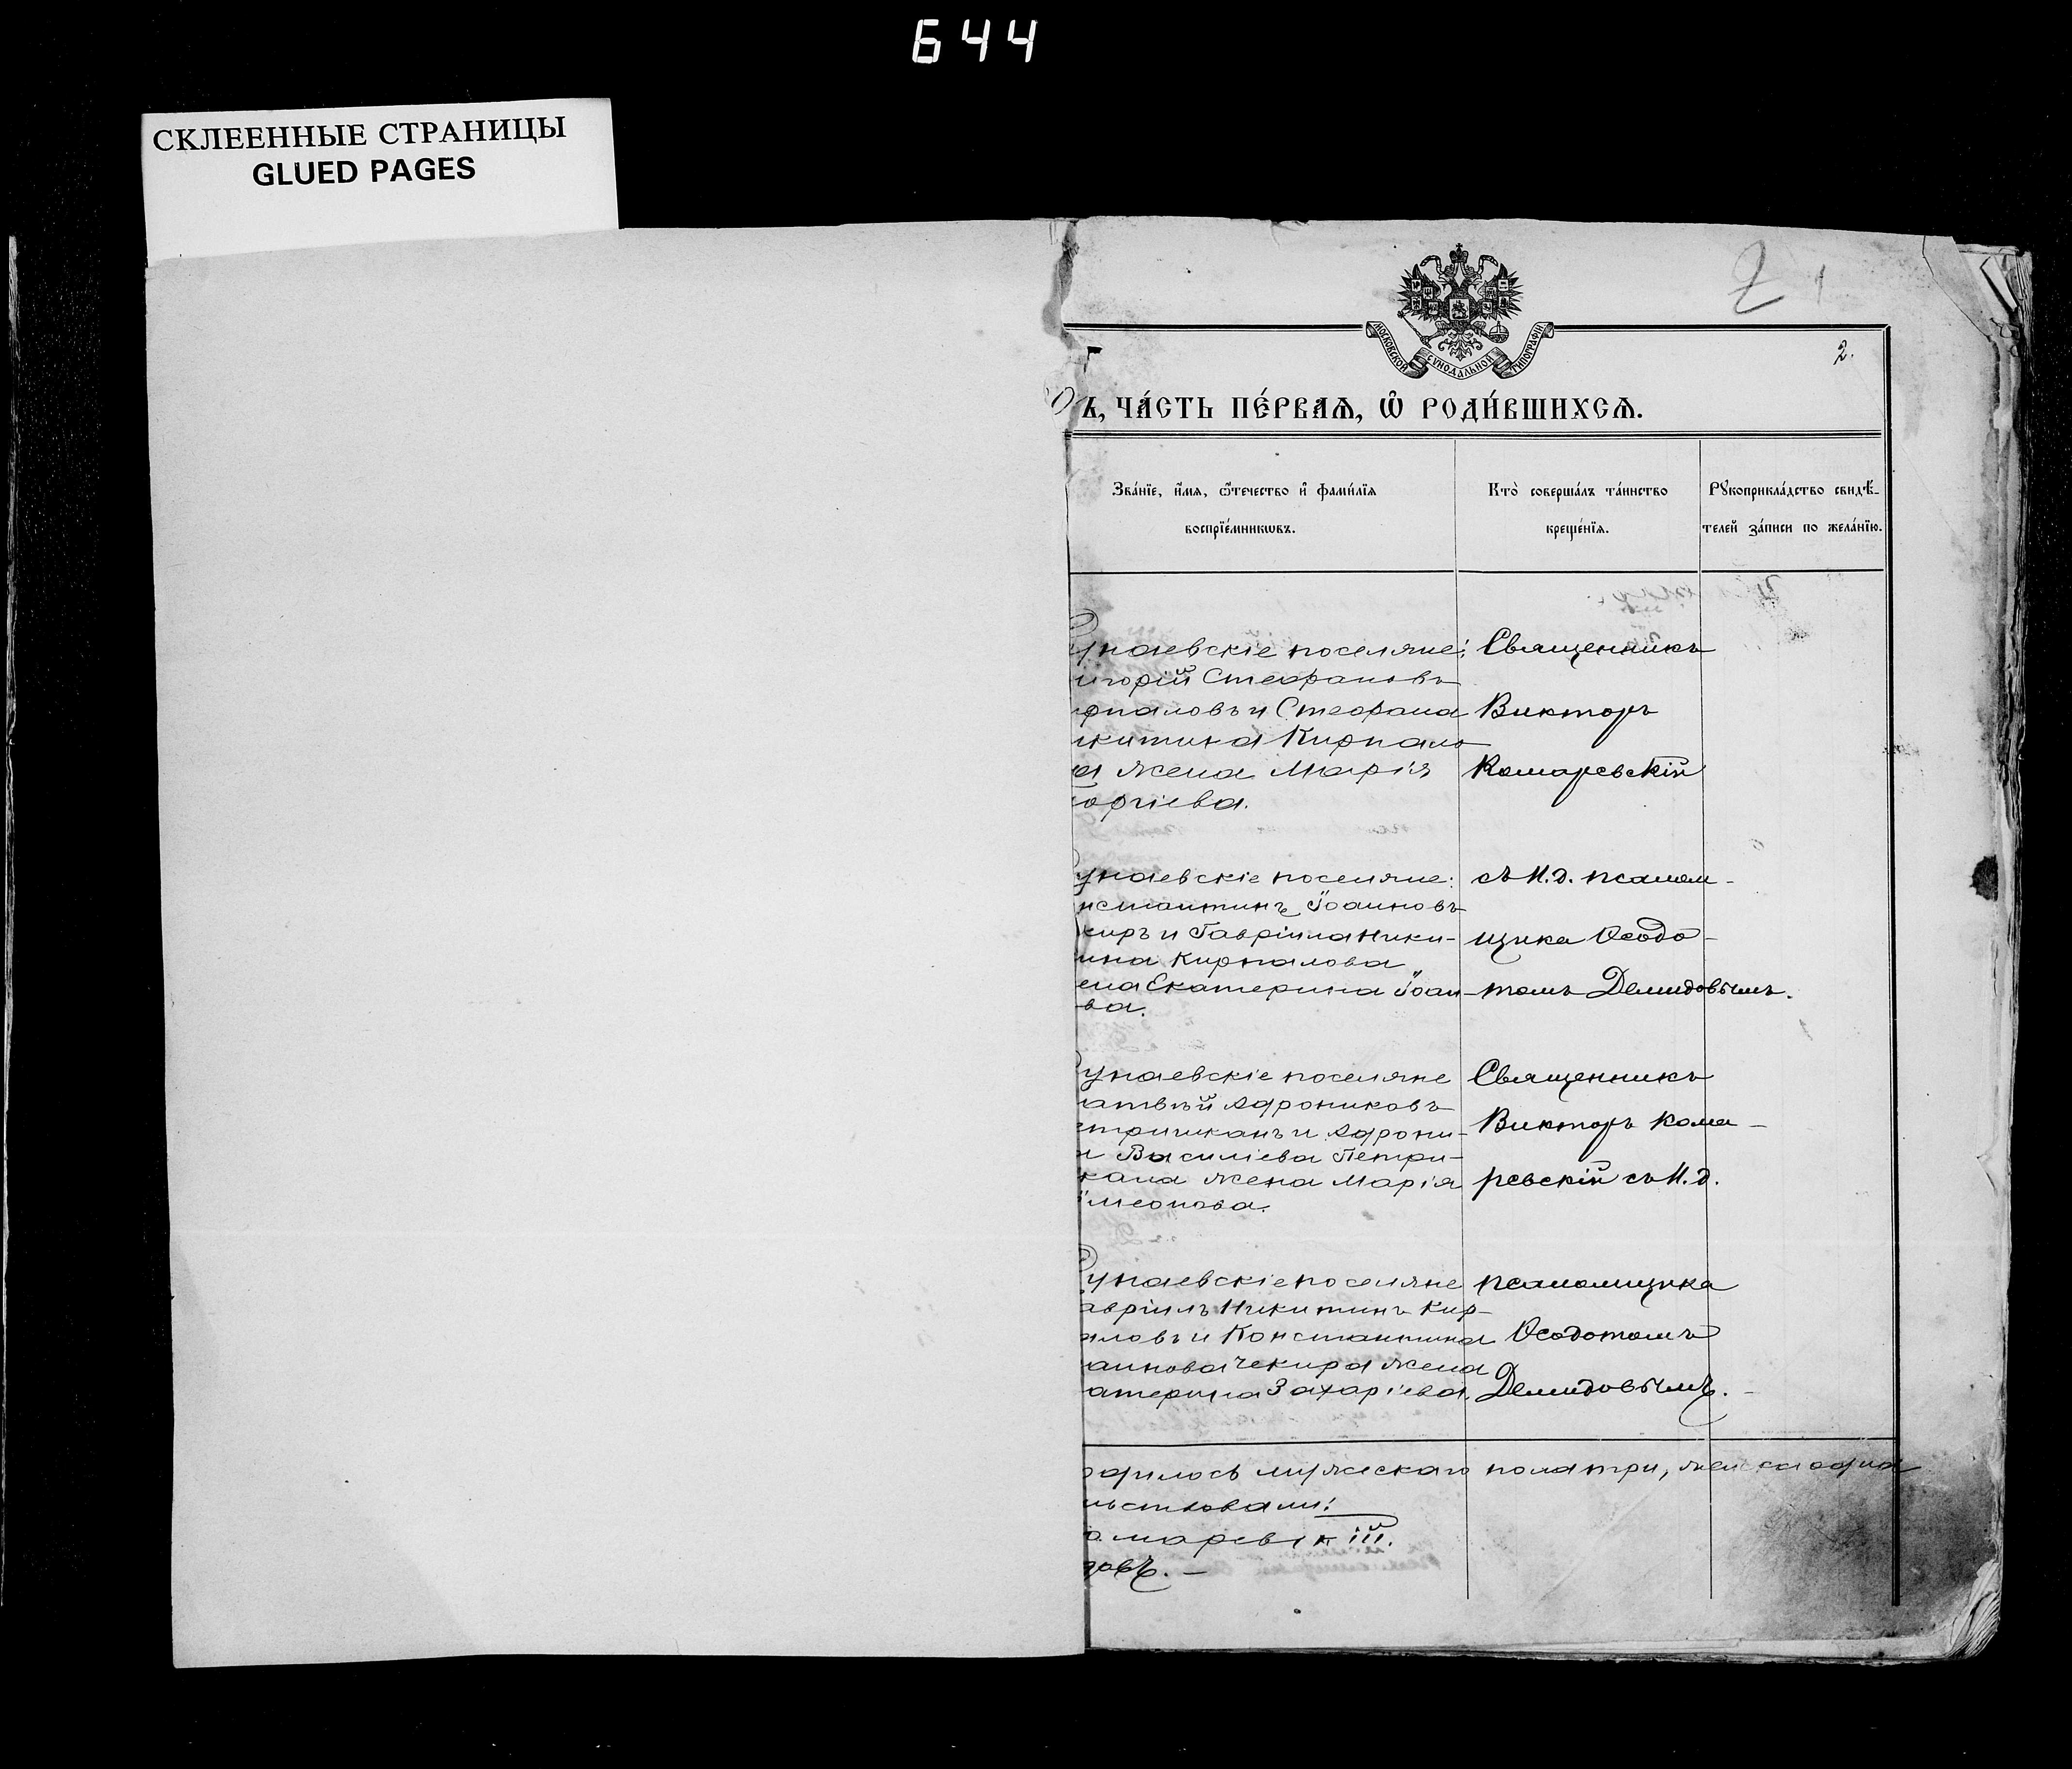 644
СКЛЕЕННЫЕ СТРАНИЦЫ
GLUED PAGES
2
МОСКОВСКОЙ СѴНОДАЛЬНОЙ ТИПОГРАФІИ
2.
Ъ, ЧА́СТЬ ПЕ́РВАѦ, Ѡ҆ РОДИ́ВШИХСѦ.
Зва́нїе, и҆́мѧ, ѻ҆́течество и҆ фами́лїѧ
воспрїе́мникѡвъ.
Кто̀ соверша́лъ та́инство
креще́нїѧ.
Рꙋкоприкла́дство свидѣ́-
телей за́писи по жела́нїю.
унаевскіе поселяне:
игорій Стефановъ
рпаловъ и Стефана
икитина Кирпало
а жена Марія
оргіева.
Священникъ
Викторъ
Комаревскій
унаевскіе поселяне:
нстантинъ Іоанновъ
киръ и Гавріила Ники-
ина Кирпалова
ена Екатерина Іоан-
ва.
съ И.д. псалом-
щика Ѳеодо-
томъ Демидовымъ.
унаевскіе поселяне
атвѣй Андрониковъ
етричканъ и Андрони-
Василіева Петри-
кана жена Марія
имеонова.
Священникъ
Викторъ Кома-
ревскій съ И.д.
унаевскіе поселяне
авріилъ Никитинъ Кир-
аловъ и Константина
аннова Чекира жена
атерина Захаріева.
псаломщика
Ѳеодотомъ
Демидовымъ.
одилось мужескаго пола три, женска одна
льствовали:
омаревскій.
довъ.